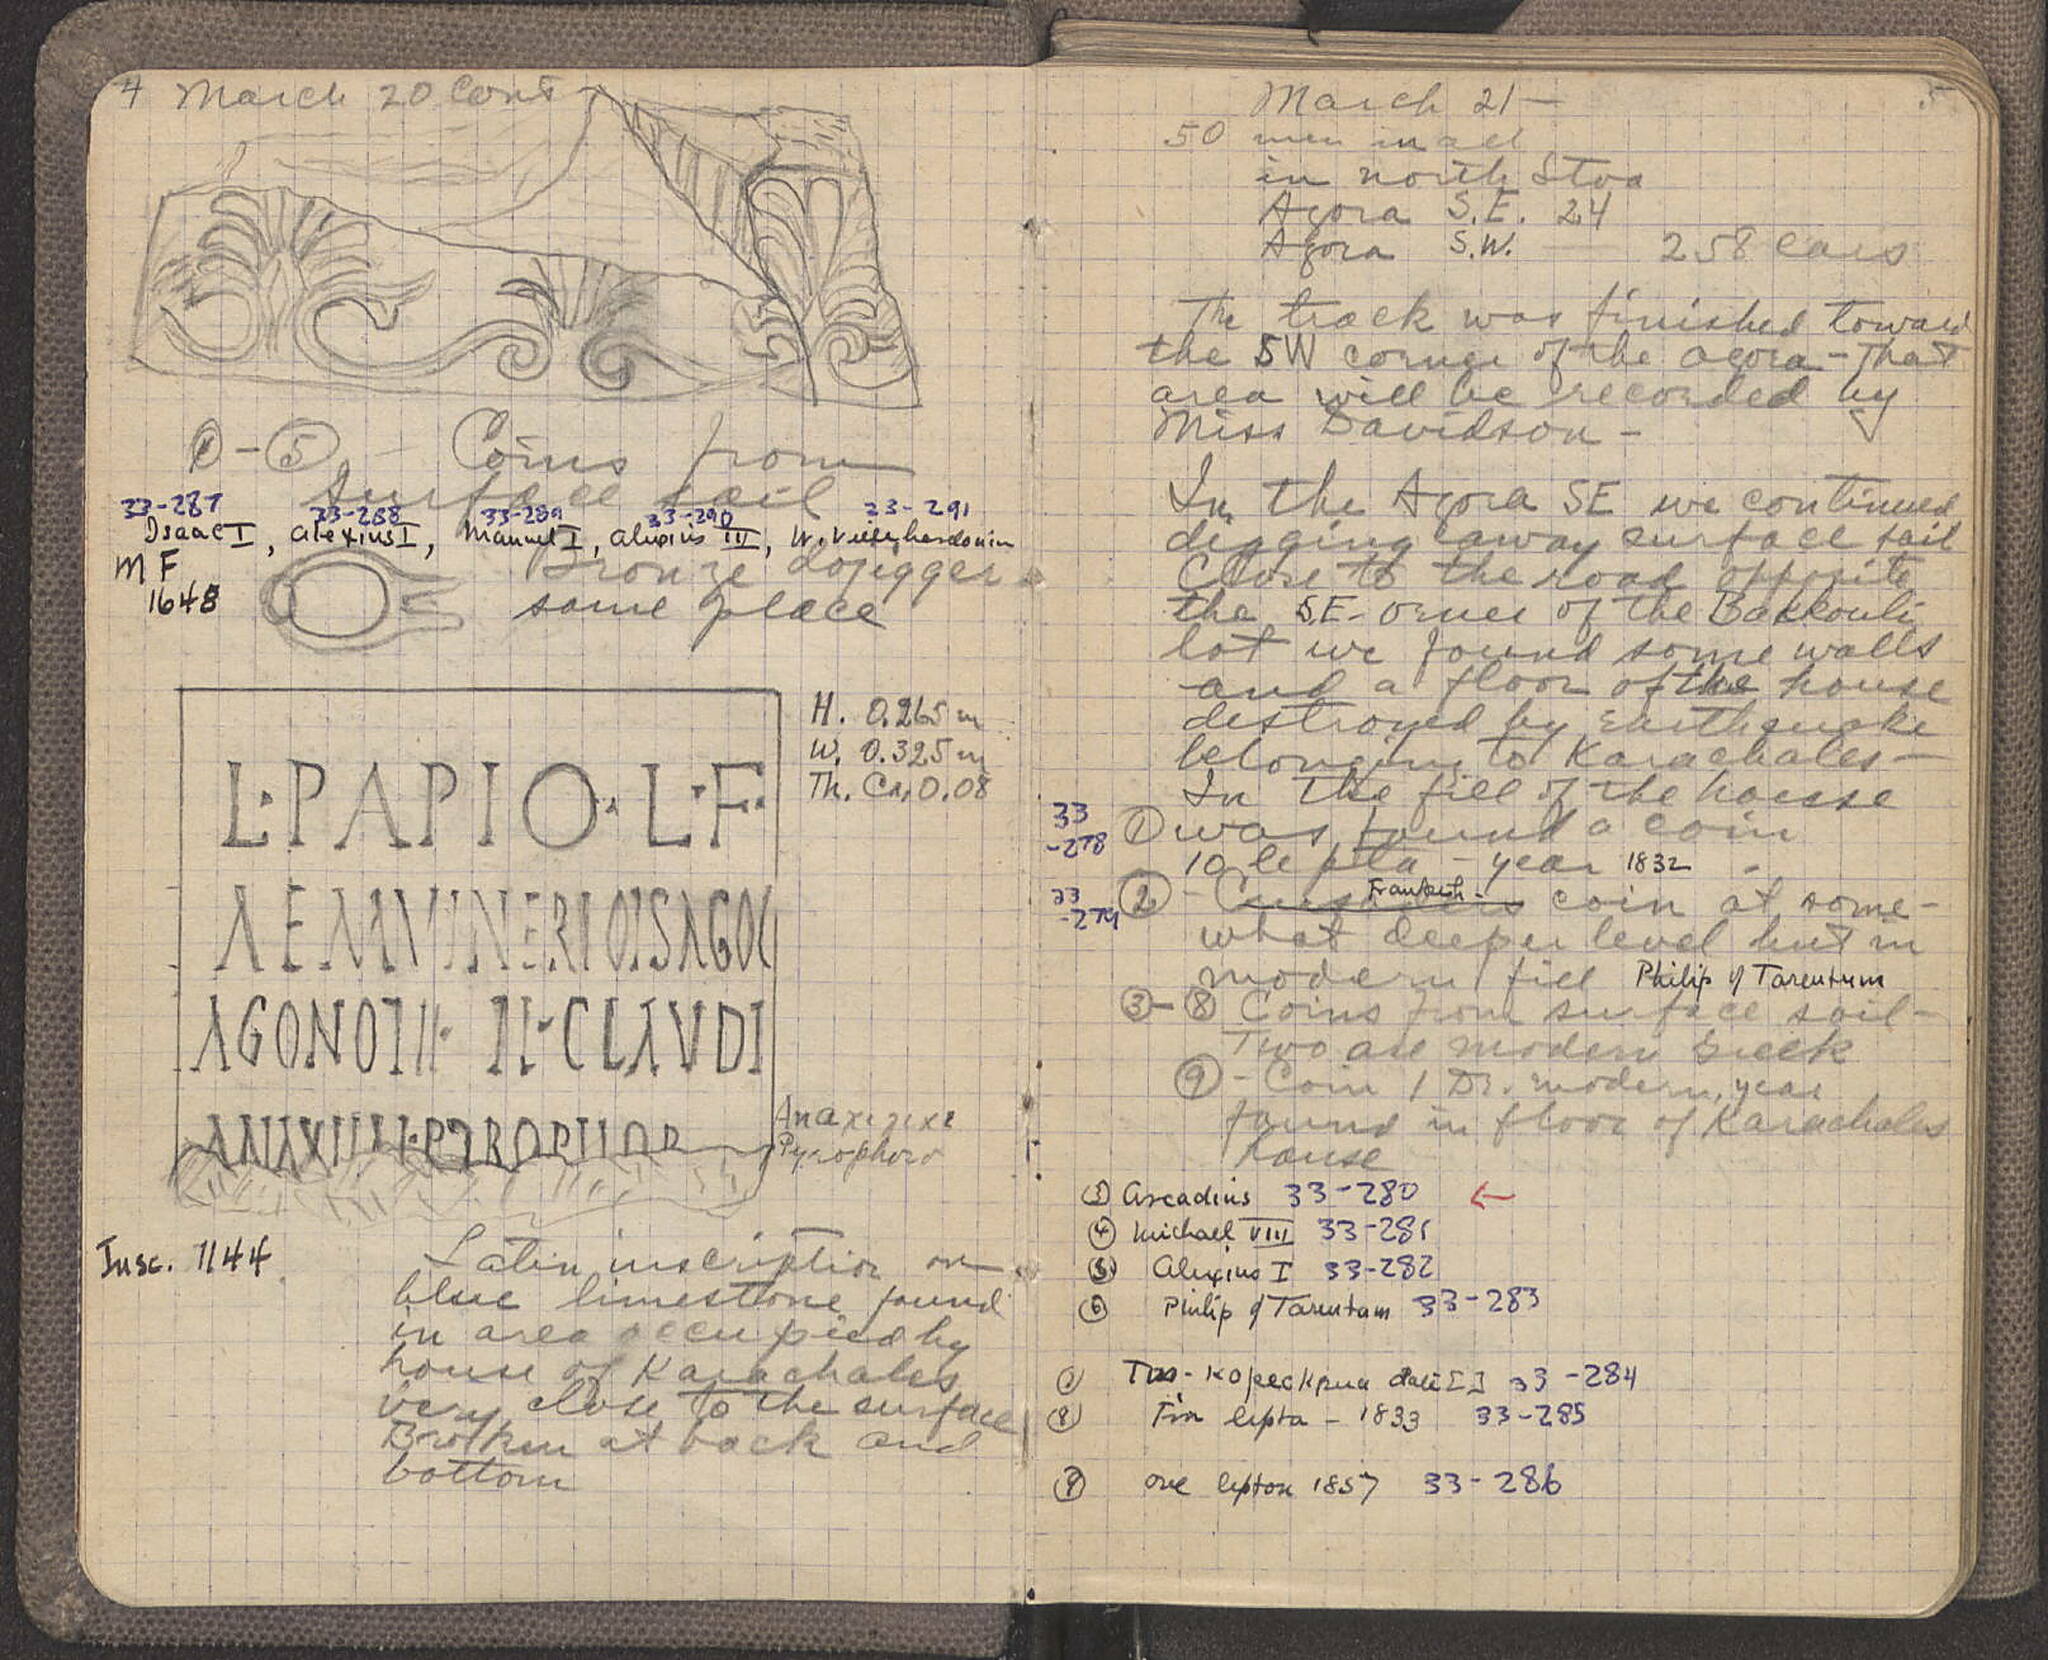 4 March 20 Cont
① - ⑤ - Coins from
surface soil
33-287 33-288 33-289 33-290 33-291
Isaac I, Alexius I, Manuel I, Alexius III, W. Villehardouin
MF
1648
Bronze dojigger
same place
H. 0.265 m
W. 0.325 m
Th. Ca. 0.08
L·PAPIO·L·F
AGONOTH· CLAVDI
Pyrophoro
Insc. 1144
Latin inscription on
blue limestone found
in area occupied by
house of Karachales
very close to the surface
Broken at back and
bottom
5
March 21 —
50 men in all
in north Stoa
Agora S.E. 24
Agora S.W. — 258 Cars
The track was finished toward
the SW corner of the agora - That
area will be recorded by
Miss Davidson -
In the Agora SE we continued
digging away surface soil
Close to the road opposite
the SE- corner of the Bakkouli
lot we found some walls
and a floor of the house
destroyed by earthquake
belonging to Karachales —
In the fill of the house
33-278 ① was found a coin
10 lepta - year 1832
33-279 ② - Frankish coin at some-
what deeper level but in
modern fill Philip of Tarentum
③-⑧ Coins from surface soil -
Two are modern Greek
⑨ - Coin 1 Dr. modern, year
found in floor of Karachales
house
③ Arcadius 33-280 ←
④ Michael VIII 33-281
⑤ Alexius I 33-282
⑥ Philip of Tarentum 33-283
⑦ date [ ] 33-284
⑧ lepta - 1833 33-285
⑨ one lepton 1857 33-286